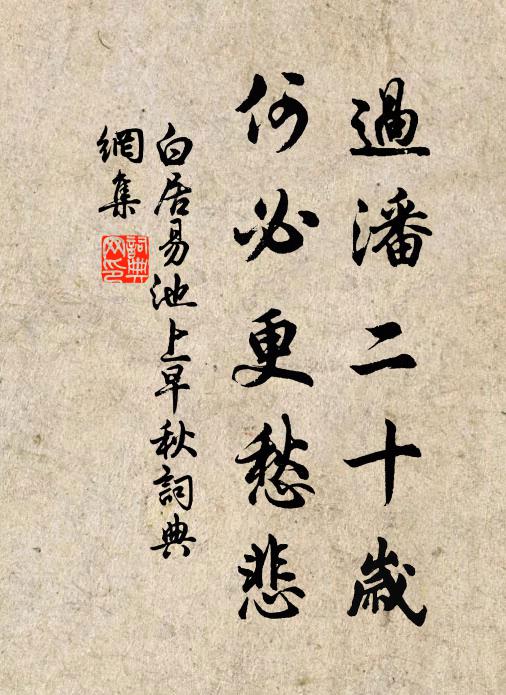 過潘二十歲
何必更愁悲
白居易池上早秋詞典
網集
詞典
网印